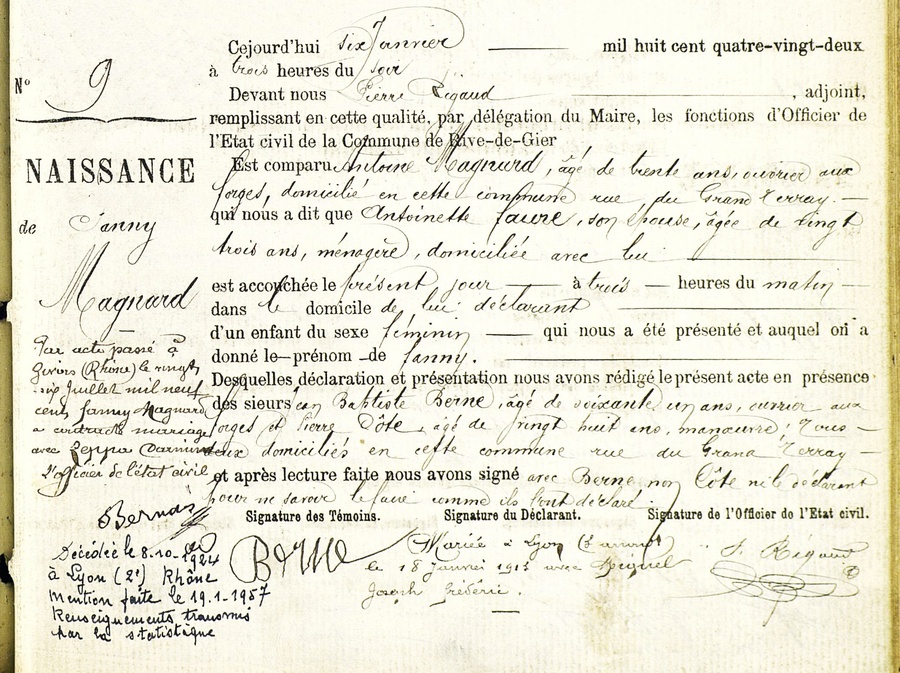 N° 9
NAISSANCE
de Fanny
Magnard
Cejourd'hui six Janvier mil huit cent quatre-vingt-deux
à trois heures du soir
Devant nous Pierre Rigaud, adjoint,
remplissant en cette qualité, par délégation du Maire, les fonctions d'Officier de
l'Etat civil de la Commune de Rive-de-Gier
Est comparu Antoine Magnard, âgé de trente ans, ouvrier aux
forges, domicilié en cette commune rue du Grand Terray.
qui nous a dit que Antoinette Faure, son épouse, âgée de vingt
trois ans, ménagère, domiciliée avec lui
est accouchée le présent jour à trois heures du matin
dans le domicile de lui déclarant
d'un enfant du sexe féminin qui nous a été présenté et auquel on a
donné le prénom de fanny.
Desquelles déclaration et présentation nous avons rédigé le présent acte en présence
des sieurs Jean Baptiste Berne, âgé de soixante un ans, ouvrier aux
forges et Pierre Côte, âgé de vingt huit ans, manœuvre; Tous
deux domiciliés en cette commune rue du Grand Terray
et après lecture faite nous avons signé avec Berne non Côte ni le déclarant
pour ne savoir le faire comme ils l'ont déclaré.
Signature des Témoins. Signature du Déclarant. Signature de l'Officier de l'Etat civil.
Berne
P. Rigaud
Mariée à Lyon
le 18 Janvier avec Miguel
Joseph Frédéric.
Par acte passé à
Givors (Rhône) le vingt
six Juillet mil neuf
cent, fanny Magnard
a contracté mariage
avec
l'officier de l'état civil
Décédée le 8.10.1924
à Lyon (2e) Rhône
Mention faite le 19.1.1957
Renseignements transmis
par la statistique